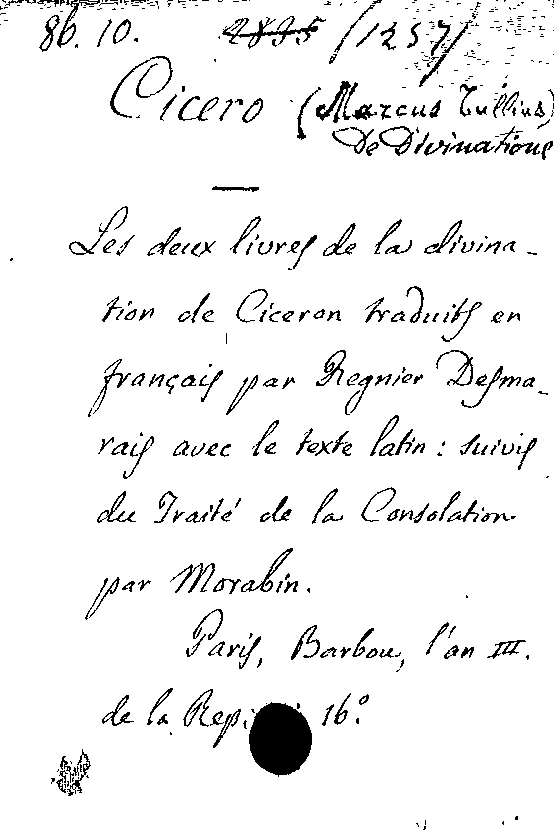 8b. 10. 2835 /1257/
Cicero (Marcus Tullius)
De Divinatione
Les deux livres de la divina-
tion de Ciceron traduits en
français par Regnier Desma-
rais avec le texte latin : suivis
du Traité de la Consolation
par Morabin.
Paris, Barbou, l'an III.
de la 16.°